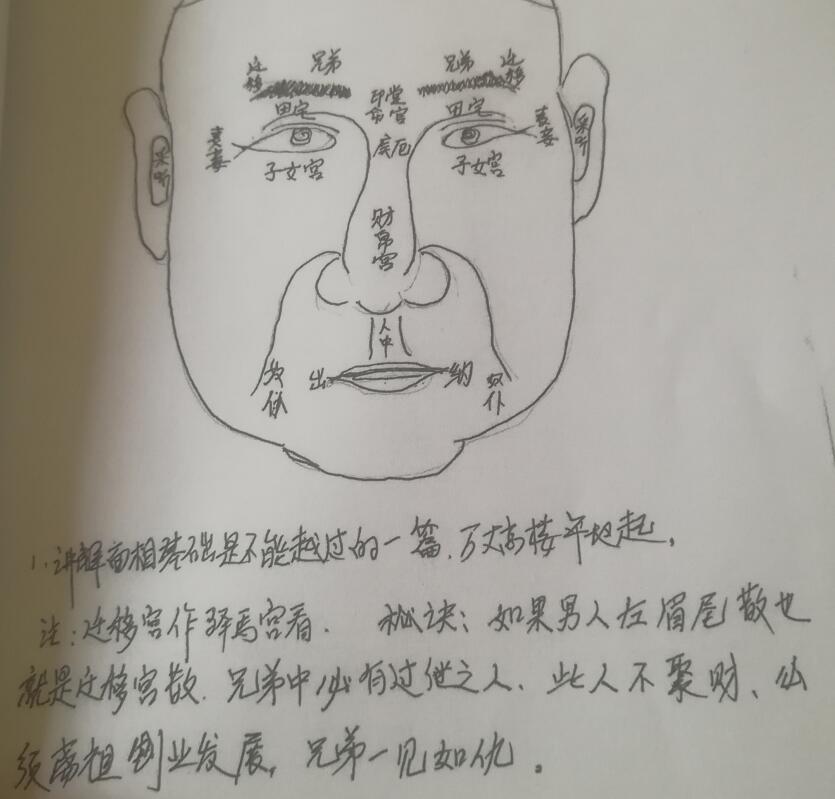 迁移 兄弟 兄弟 迁移
印堂
命宫
田宅 田宅
妻妾 妻妾
采听 采听
疾厄
子女宫 子女宫
财帛宫
人中
奴仆 出 纳 奴仆
1.讲解面相基础是不能越过的一篇.万丈高楼平地起,
注:迁移宫作驿马宫看. 秘诀:如果男人左眉尾散也
就是迁移宫散.兄弟中必有过世之人.此人不聚财、必
须离祖创业发展,兄弟一见如仇。